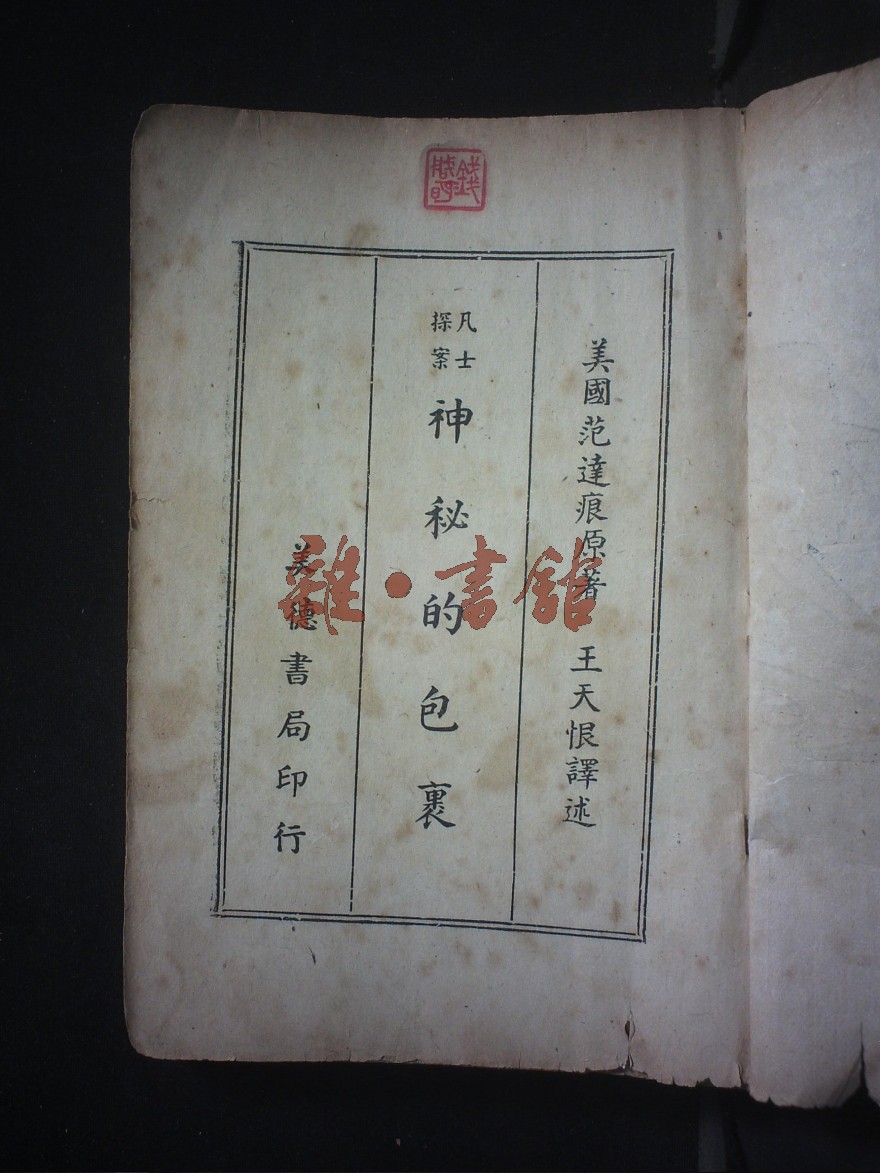 美國范達痕原著 王天恨譯述
凡士
探案
神秘的包裹
美德書局印行
雜·書館